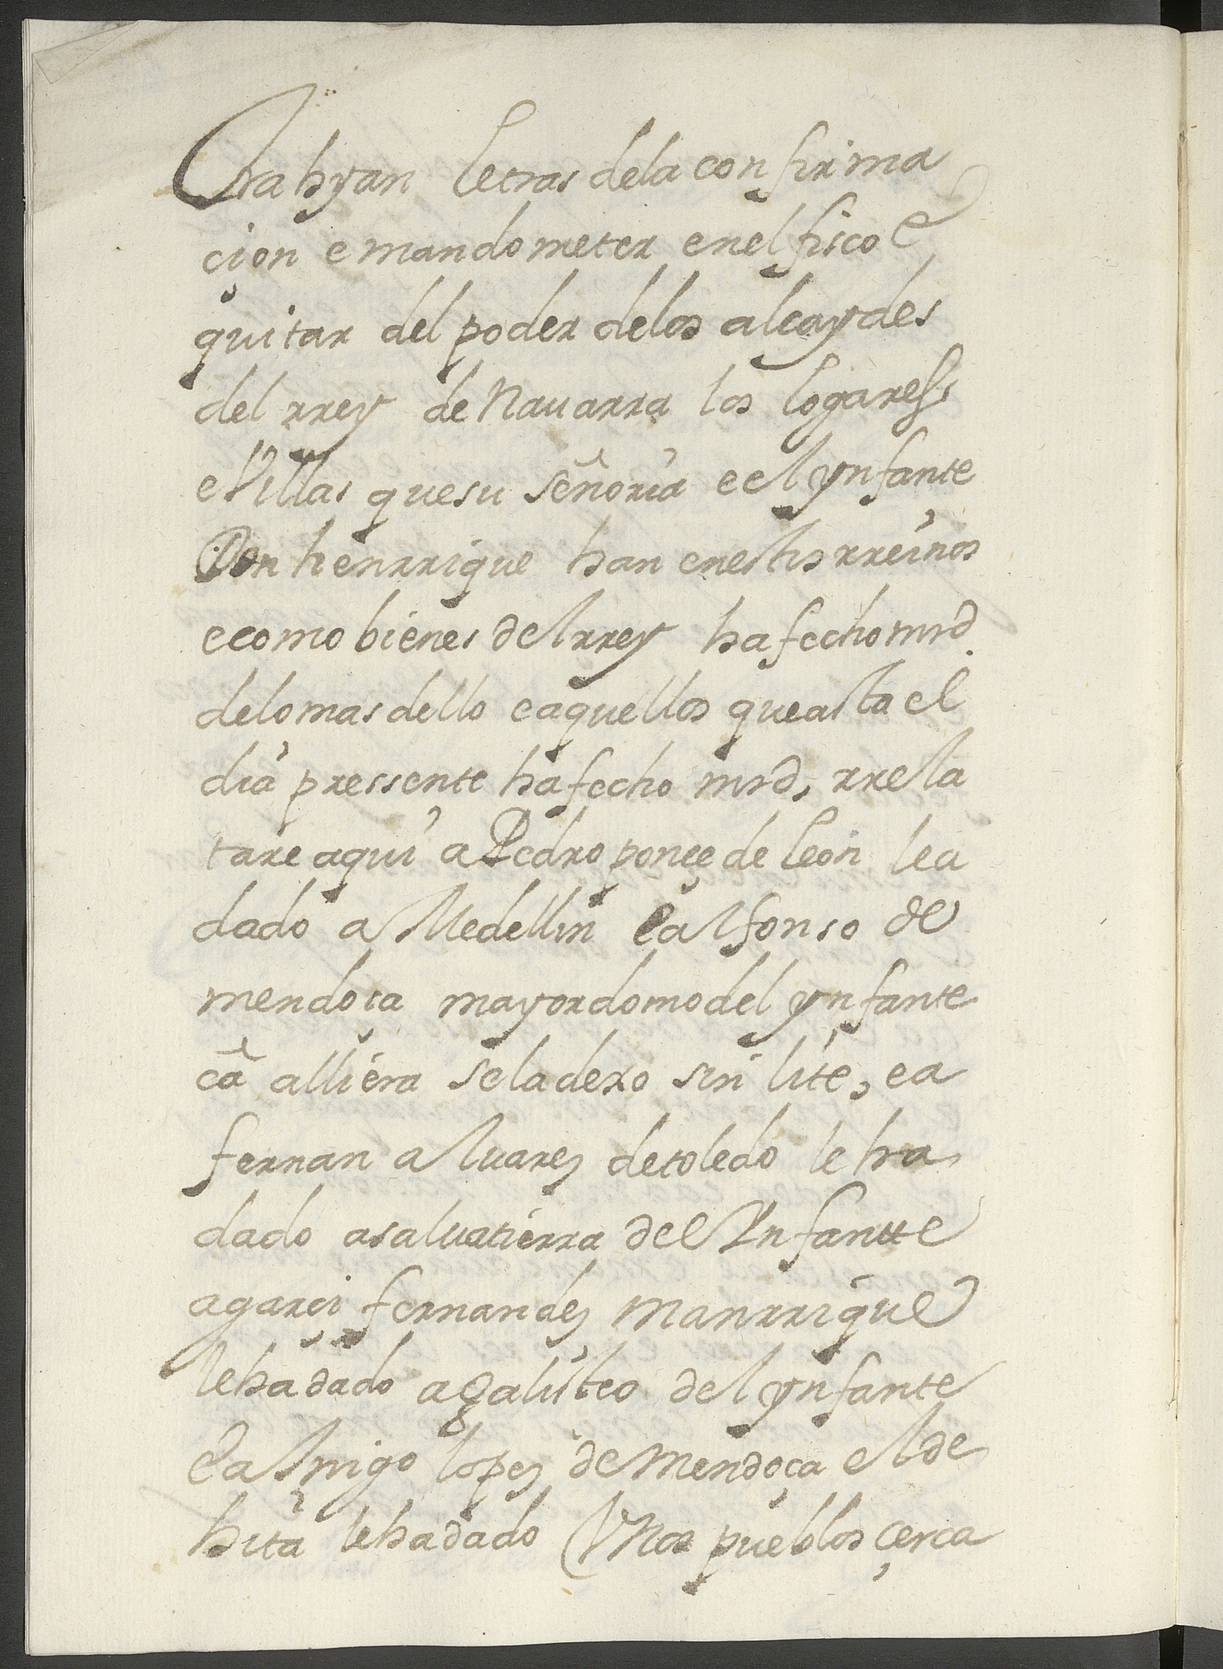 trahyan letras dela confirma
çion e mando meter enel fisco e
quitar del poder delos alcaydes
del rrey de Nauarra los logaress
e Villas que su señoria e el ynfante
Don henrrique han enestos rreinos
e como bienes del rrey ha fecho mrd
delo mas dello e aquellos que asta el
dia pressente ha fecho mrd, rrela
tare aqui a Pedro ponçe de leon le a
dado a Medellin e a Alfonso de
mendoça mayordomo del ynfante
ca alli era sela dexo sin lite, e a
fernan aluarez de toledo le ha
dado a saluatierra del Ynfantte
a garçi fernandez manrrique
le ha dado a galisteo del ynfante
e a Inigo lopez de Mendoça el de
hita le ha dado Vnos pueblos çerca